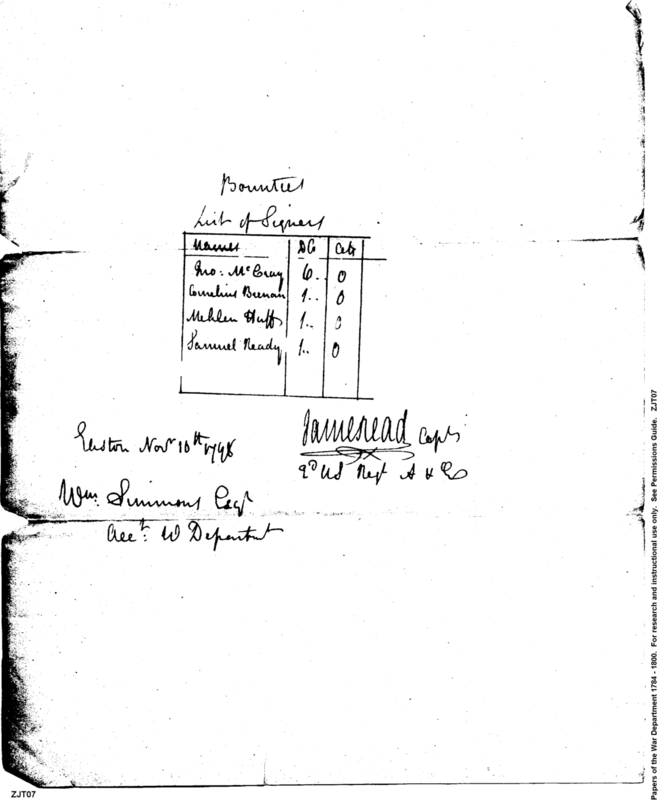 Bounties
List of Signers
Names Do Cts
Jno: McCray 6.. 0
Cornelius Brenan 1.. 0
Mehlen Huff 1.. 0
Samuel Ready 1.. 0
Easton Novr 10th 1798
James Read Captn
2d US Regt A & E
Wm. Simmons Esqr
Acct: W Department
Papers of the War Department 1784 - 1800. For research and instructional use only. See Permissions Guide. ZJT07
ZJT07